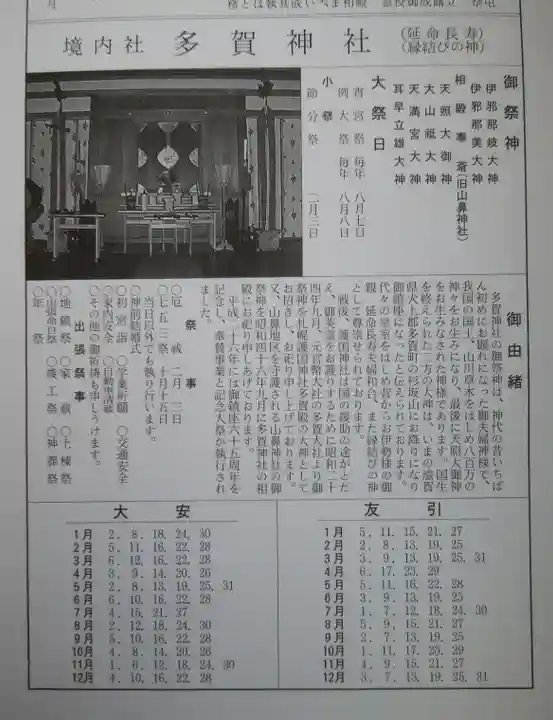 境内社 多賀神社 (延命長寿)(縁結びの神)
御祭神
伊邪那岐大神
伊邪那美大神
相殿奉斎(旧山鼻神社)
天照大御神
大山祗大神
天満宮大神
耳早立雄大神
大祭日
宵宮祭 毎年 八月七日
例大祭 毎年 八月八日
小祭
節分祭 二月三日
御由緒
多賀神社の御祭神は、神代の昔いちば
ん初めにお顕れになった御夫婦神様で、
我国の国土、山川草木をはじめ八百万の
神々をお生みになり、最後に天照大御神
をお生みなされた神様であります。国生
を終えられた二方の大神は、いまの滋賀
県犬上郡多賀町の杉坂山にお降りになり
御鎮座になったと伝えられております。
代々の皇室をはじめ昔からお伊勢様の御
親、延命長寿夫婦和合、また縁結びの神
として尊崇せられております。
戦後、護国神社は国の援助の途がとだ
え、御奏護をお護りするために昭和二十
四年九月、元官幣大社の多賀大社より御
祭神を札幌護国神社多賀殿の大神として
お招きし、お祀り申し上げております。
又、山鼻地区を守護される山鼻神社の御
祭神を昭和四十六年九月に多賀神社の相
殿にお祀り申しあげております。
平成二十六年には御鎮座六十五周年を
記念し、奉賛事業と記念大祭が執行され
ました。
祭事
○厄祓 二月三日
○七五三祭 十月十五日
当日以外でも執り行います。
○神前結婚式
○初宮詣 ○学業祈願 ○交通安全
○家内安全 ○自動車清祓
○その他の御祈祷も申しうけます。
出張祭事
○地鎮祭 ○家祓 ○上棟祭
○出張命日祭 ○竣工祭 ○神葬祭
○年祭
大安
1月 2. 8. 18. 24. 30
2月 5. 11. 16. 22. 28
3月 6. 12. 16. 22. 28
4月 3. 9. 14. 20. 26
5月 2. 8. 13. 19. 25. 31
6月 6. 10. 16. 22. 28
7月 4. 15. 21. 27
8月 2. 12. 18. 24. 30
9月 5. 10. 16. 22. 28
10月 4. 8. 14. 20. 26
11月 1. 6. 12. 18. 24. 30
12月 4. 10. 16. 22. 28
友引
1月 5. 11. 15. 21. 27
2月 2. 8. 13. 19. 25
3月 3. 9. 13. 19. 25. 31
4月 6. 17. 23. 29
5月 5. 11. 16. 22. 28
6月 3. 9. 13. 19. 25
7月 1. 7. 12. 18. 24. 30
8月 5. 9. 15. 21. 27
9月 2. 7. 13. 19. 25
10月 1. 11. 17. 23. 29
11月 4. 9. 15. 21. 27
12月 3. 7. 13. 19. 25. 31